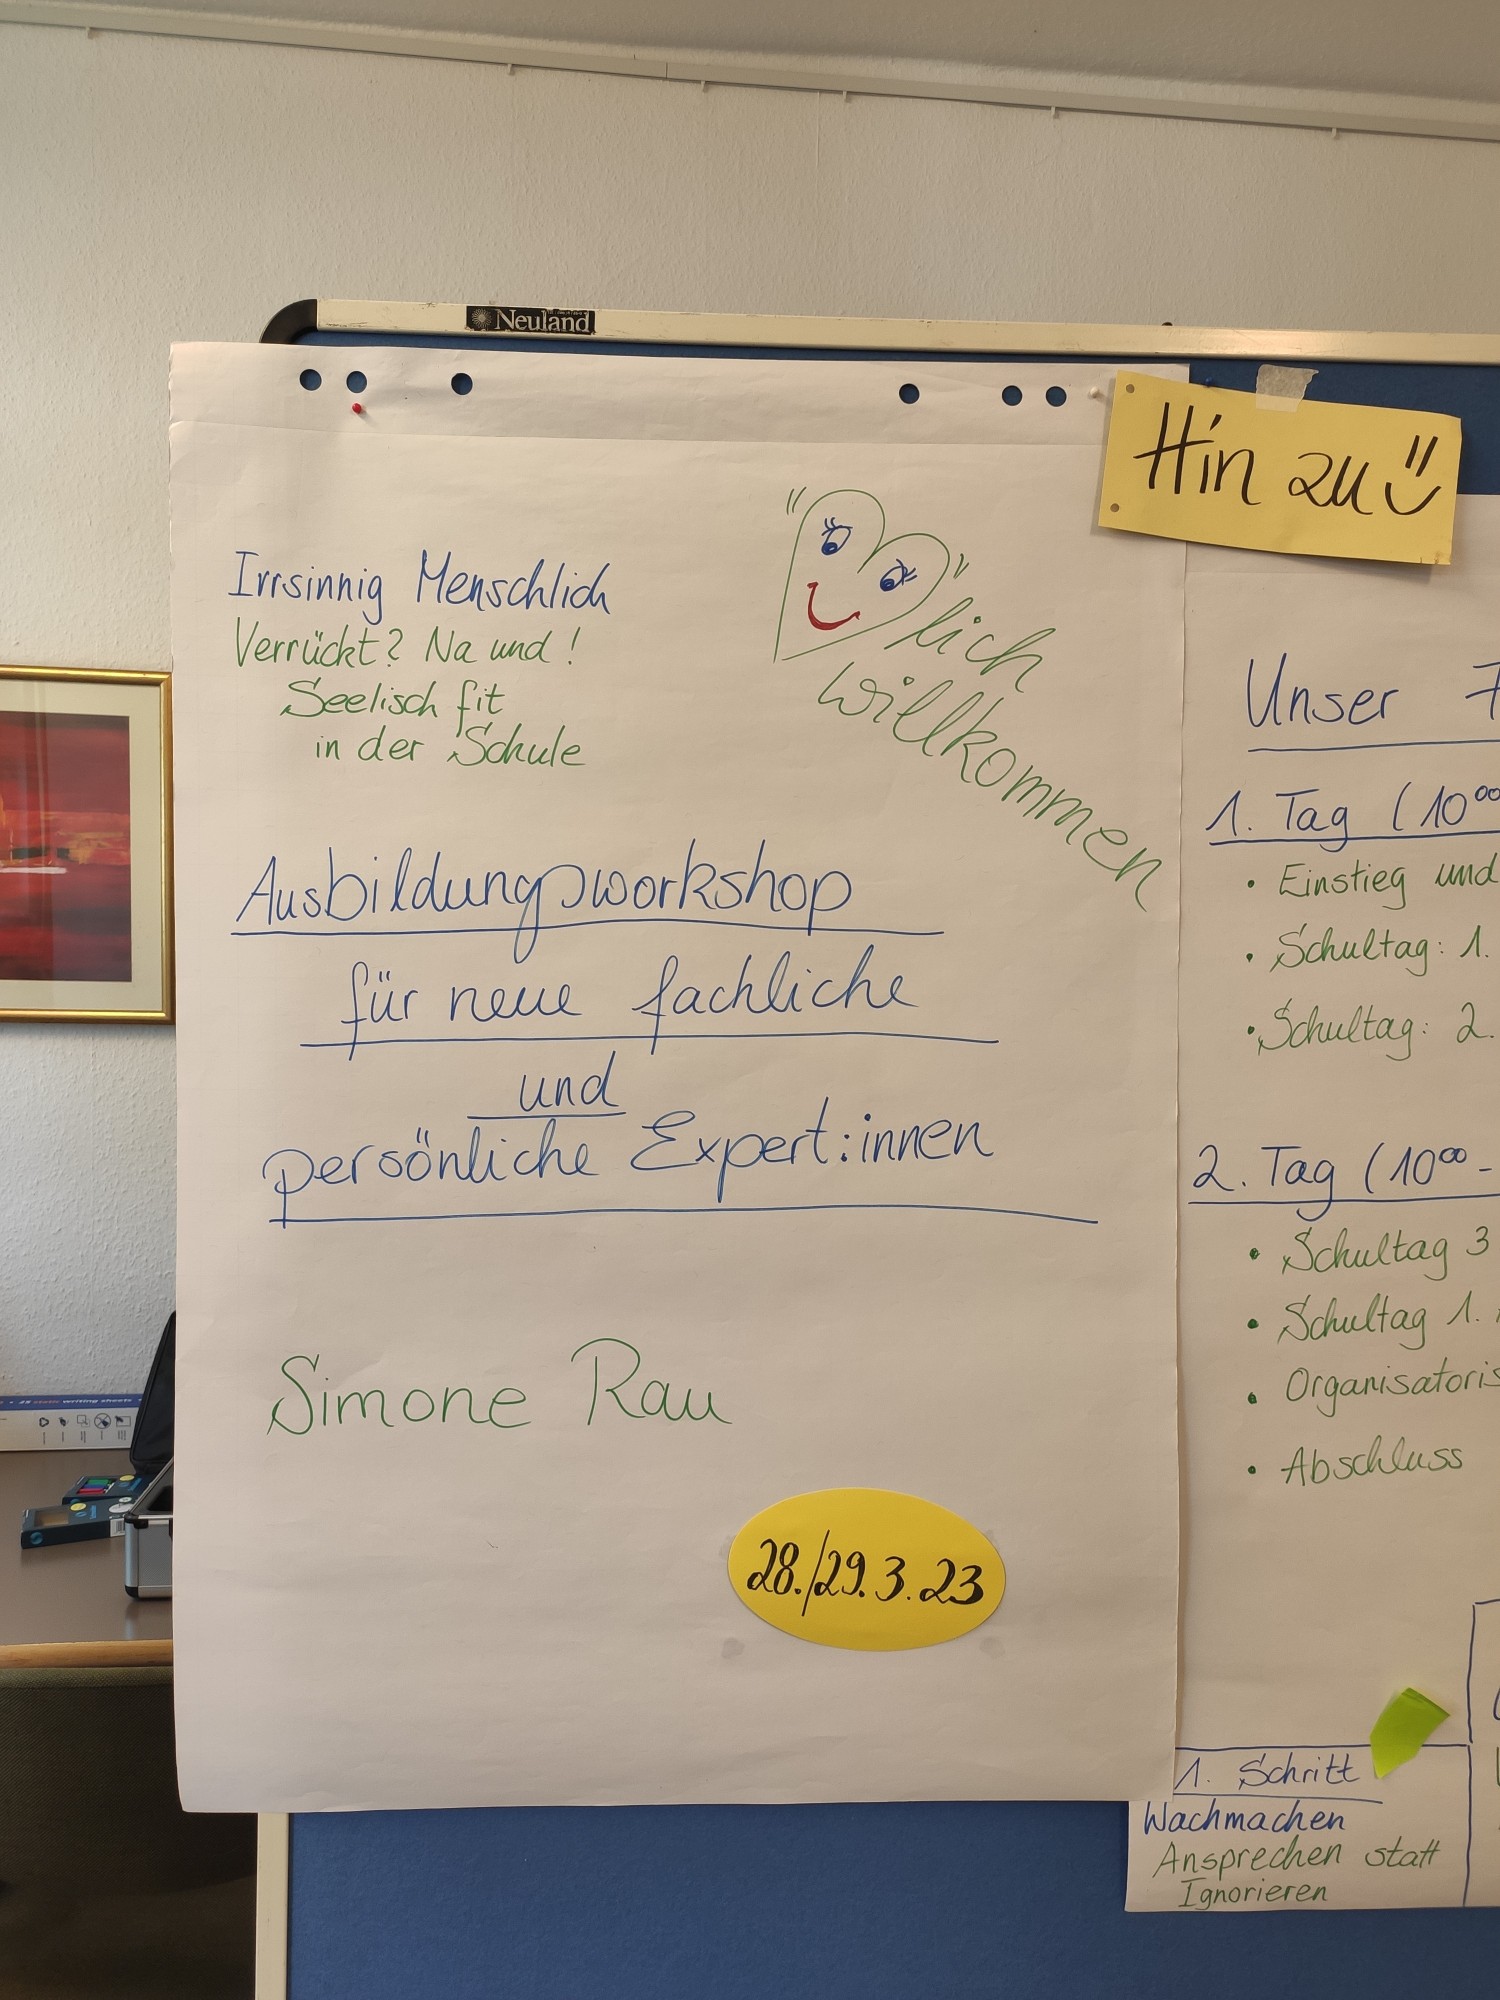 Neuland
Hin zu
Irrsinnig Menschlich
Verrückt? Na und!
Seelisch fit
in der Schule
"lich
willkommen
Ausbildungsworkshop
für neue fachliche
und
persönliche Expert:innen
Simone Rau
28./29.3.23
Unser
1. Tag (10⁰⁰
• Einstieg und
• Schultag: 1.
• Schultag: 2.
2. Tag (10⁰⁰ -
• Schultag 3
• Schultag 1.
• Organisatoris
• Abschluss
1. Schritt
Wachmachen
Ansprechen statt
Ignorieren
writing sheets